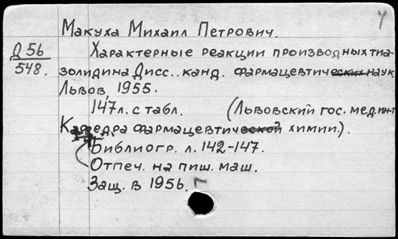 Макуха Михаил Петрович.
Д 56
548.
Характерные реакции производных тиа-
золидина Дисс.. канд. фармацевтических наук
Львов, 1955.
147л. с табл. (Львовский гос. мед. ин-т
Кафедра фармацевтической химии).
Библиогр. л. 142-147.
Отпеч. на пиш. маш.
Защ. в 1956. г